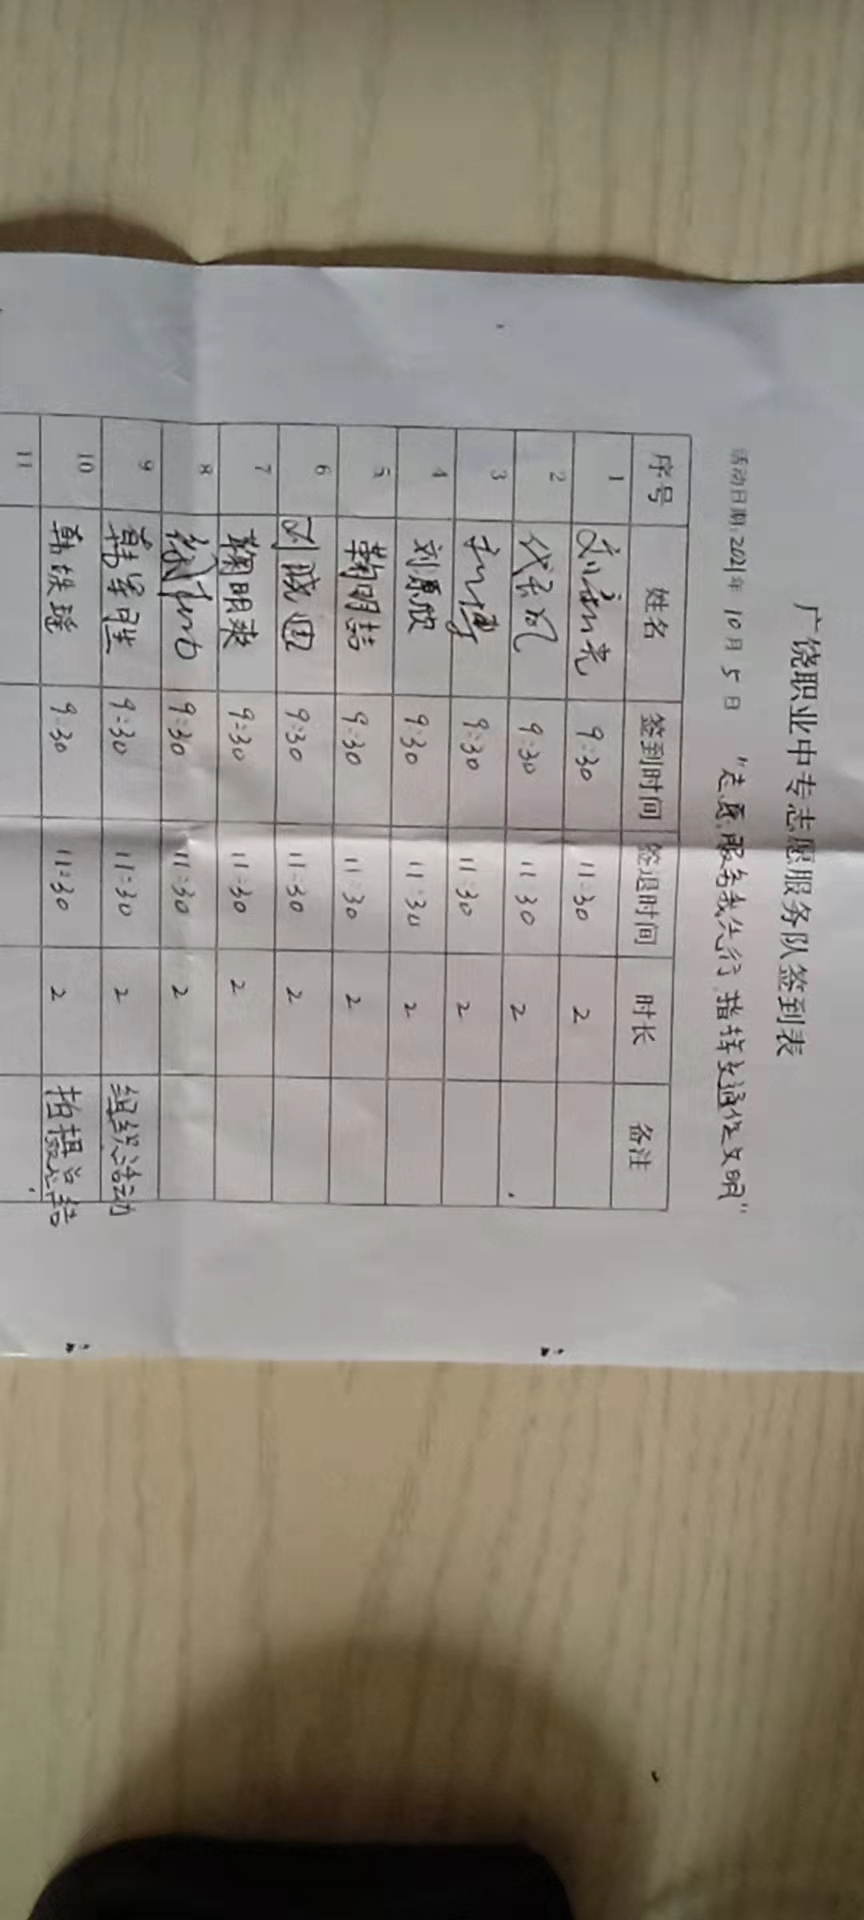 广饶职业中专志愿服务队签到表
活动日期:2021年 10月 5日 "志愿服务我先行 指挥交通促文明"
序号 姓名 签到时间 签退时间 时长 备注
1 9:30 11:30 2
2 9:30 11:30 2
3 9:30 11:30 2
4 刘原欣 9:30 11:30 2
5 9:30 11:30 2
6 刘晓 9:30 11:30 2
7 鞠明爽 9:30 11:30 2
8 9:30 11:30 2
9 9:30 11:30 2 组织活动
10 韩轶瑶 9:30 11:30 2 拍摄总结
11